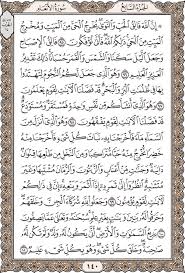 الجزء السابع سورة الأنعام
إِنَّ ٱللَّهَ فَالِقُ ٱلْحَبِّ وَٱلنَّوَىٰ يُخْرِجُ ٱلْحَيَّ مِنَ ٱلْمَيِّتِ وَمُخْرِجُ
ٱلْمَيِّتِ مِنَ ٱلْحَيِّ ذَٰلِكُمُ ٱللَّهُ فَأَنَّىٰ تُؤْفَكُونَ ٩٥ فَالِقُ ٱلْإِصْبَاحِ
وَجَعَلَ ٱلَّيْلَ سَكَنًا وَٱلشَّمْسَ وَٱلْقَمَرَ حُسْبَانًا ذَٰلِكَ تَقْدِيرُ ٱلْعَزِيزِ
ٱلْعَلِيمِ ٩٦ وَهُوَ ٱلَّذِى جَعَلَ لَكُمُ ٱلنُّجُومَ لِتَهْتَدُوا۟ بِهَا فِى
ظُلُمَٰتِ ٱلْبَرِّ وَٱلْبَحْرِ قَدْ فَصَّلْنَا ٱلْءَايَٰتِ لِقَوْمٍ يَعْلَمُونَ ٩٧
وَهُوَ ٱلَّذِىٓ أَنشَأَكُم مِّن نَّفْسٍ وَٰحِدَةٍ فَمُسْتَقَرٌّ وَمُسْتَوْدَعٌ
قَدْ فَصَّلْنَا ٱلْءَايَٰتِ لِقَوْمٍ يَفْقَهُونَ ٩٨ وَهُوَ ٱلَّذِىٓ أَنزَلَ مِنَ
ٱلسَّمَآءِ مَآءً فَأَخْرَجْنَا بِهِۦ نَبَاتَ كُلِّ شَىْءٍ فَأَخْرَجْنَا مِنْهُ
خَضِرًا نُّخْرِجُ مِنْهُ حَبًّا مُّتَرَاكِبًا وَمِنَ ٱلنَّخْلِ مِن طَلْعِهَا قِنْوَانٌ
دَانِيَةٌ وَجَنَّٰتٍ مِّنْ أَعْنَابٍ وَٱلزَّيْتُونَ وَٱلرُّمَّانَ مُشْتَبِهًا وَغَيْرَ
مُتَشَٰبِهٍ ٱنظُرُوٓا۟ إِلَىٰ ثَمَرِهِۦٓ إِذَآ أَثْمَرَ وَيَنْعِهِۦٓ إِنَّ فِى ذَٰلِكُمْ لَءَايَٰتٍ
لِّقَوْمٍ يُؤْمِنُونَ ٩٩ وَجَعَلُوا۟ لِلَّهِ شُرَكَآءَ ٱلْجِنَّ وَخَلَقَهُمْ وَخَرَقُوا۟ لَهُۥ
بَنِينَ وَبَنَٰتٍۭ بِغَيْرِ عِلْمٍ سُبْحَٰنَهُۥ وَتَعَٰلَىٰ عَمَّا يَصِفُونَ ١٠٠ بَدِيعُ
ٱلسَّمَٰوَٰتِ وَٱلْأَرْضِ أَنَّىٰ يَكُونُ لَهُۥ وَلَدٌ وَلَمْ تَكُن لَّهُۥ
صَٰحِبَةٌ وَخَلَقَ كُلَّ شَىْءٍ وَهُوَ بِكُلِّ شَىْءٍ عَلِيمٌ ١٠١
١٤٠